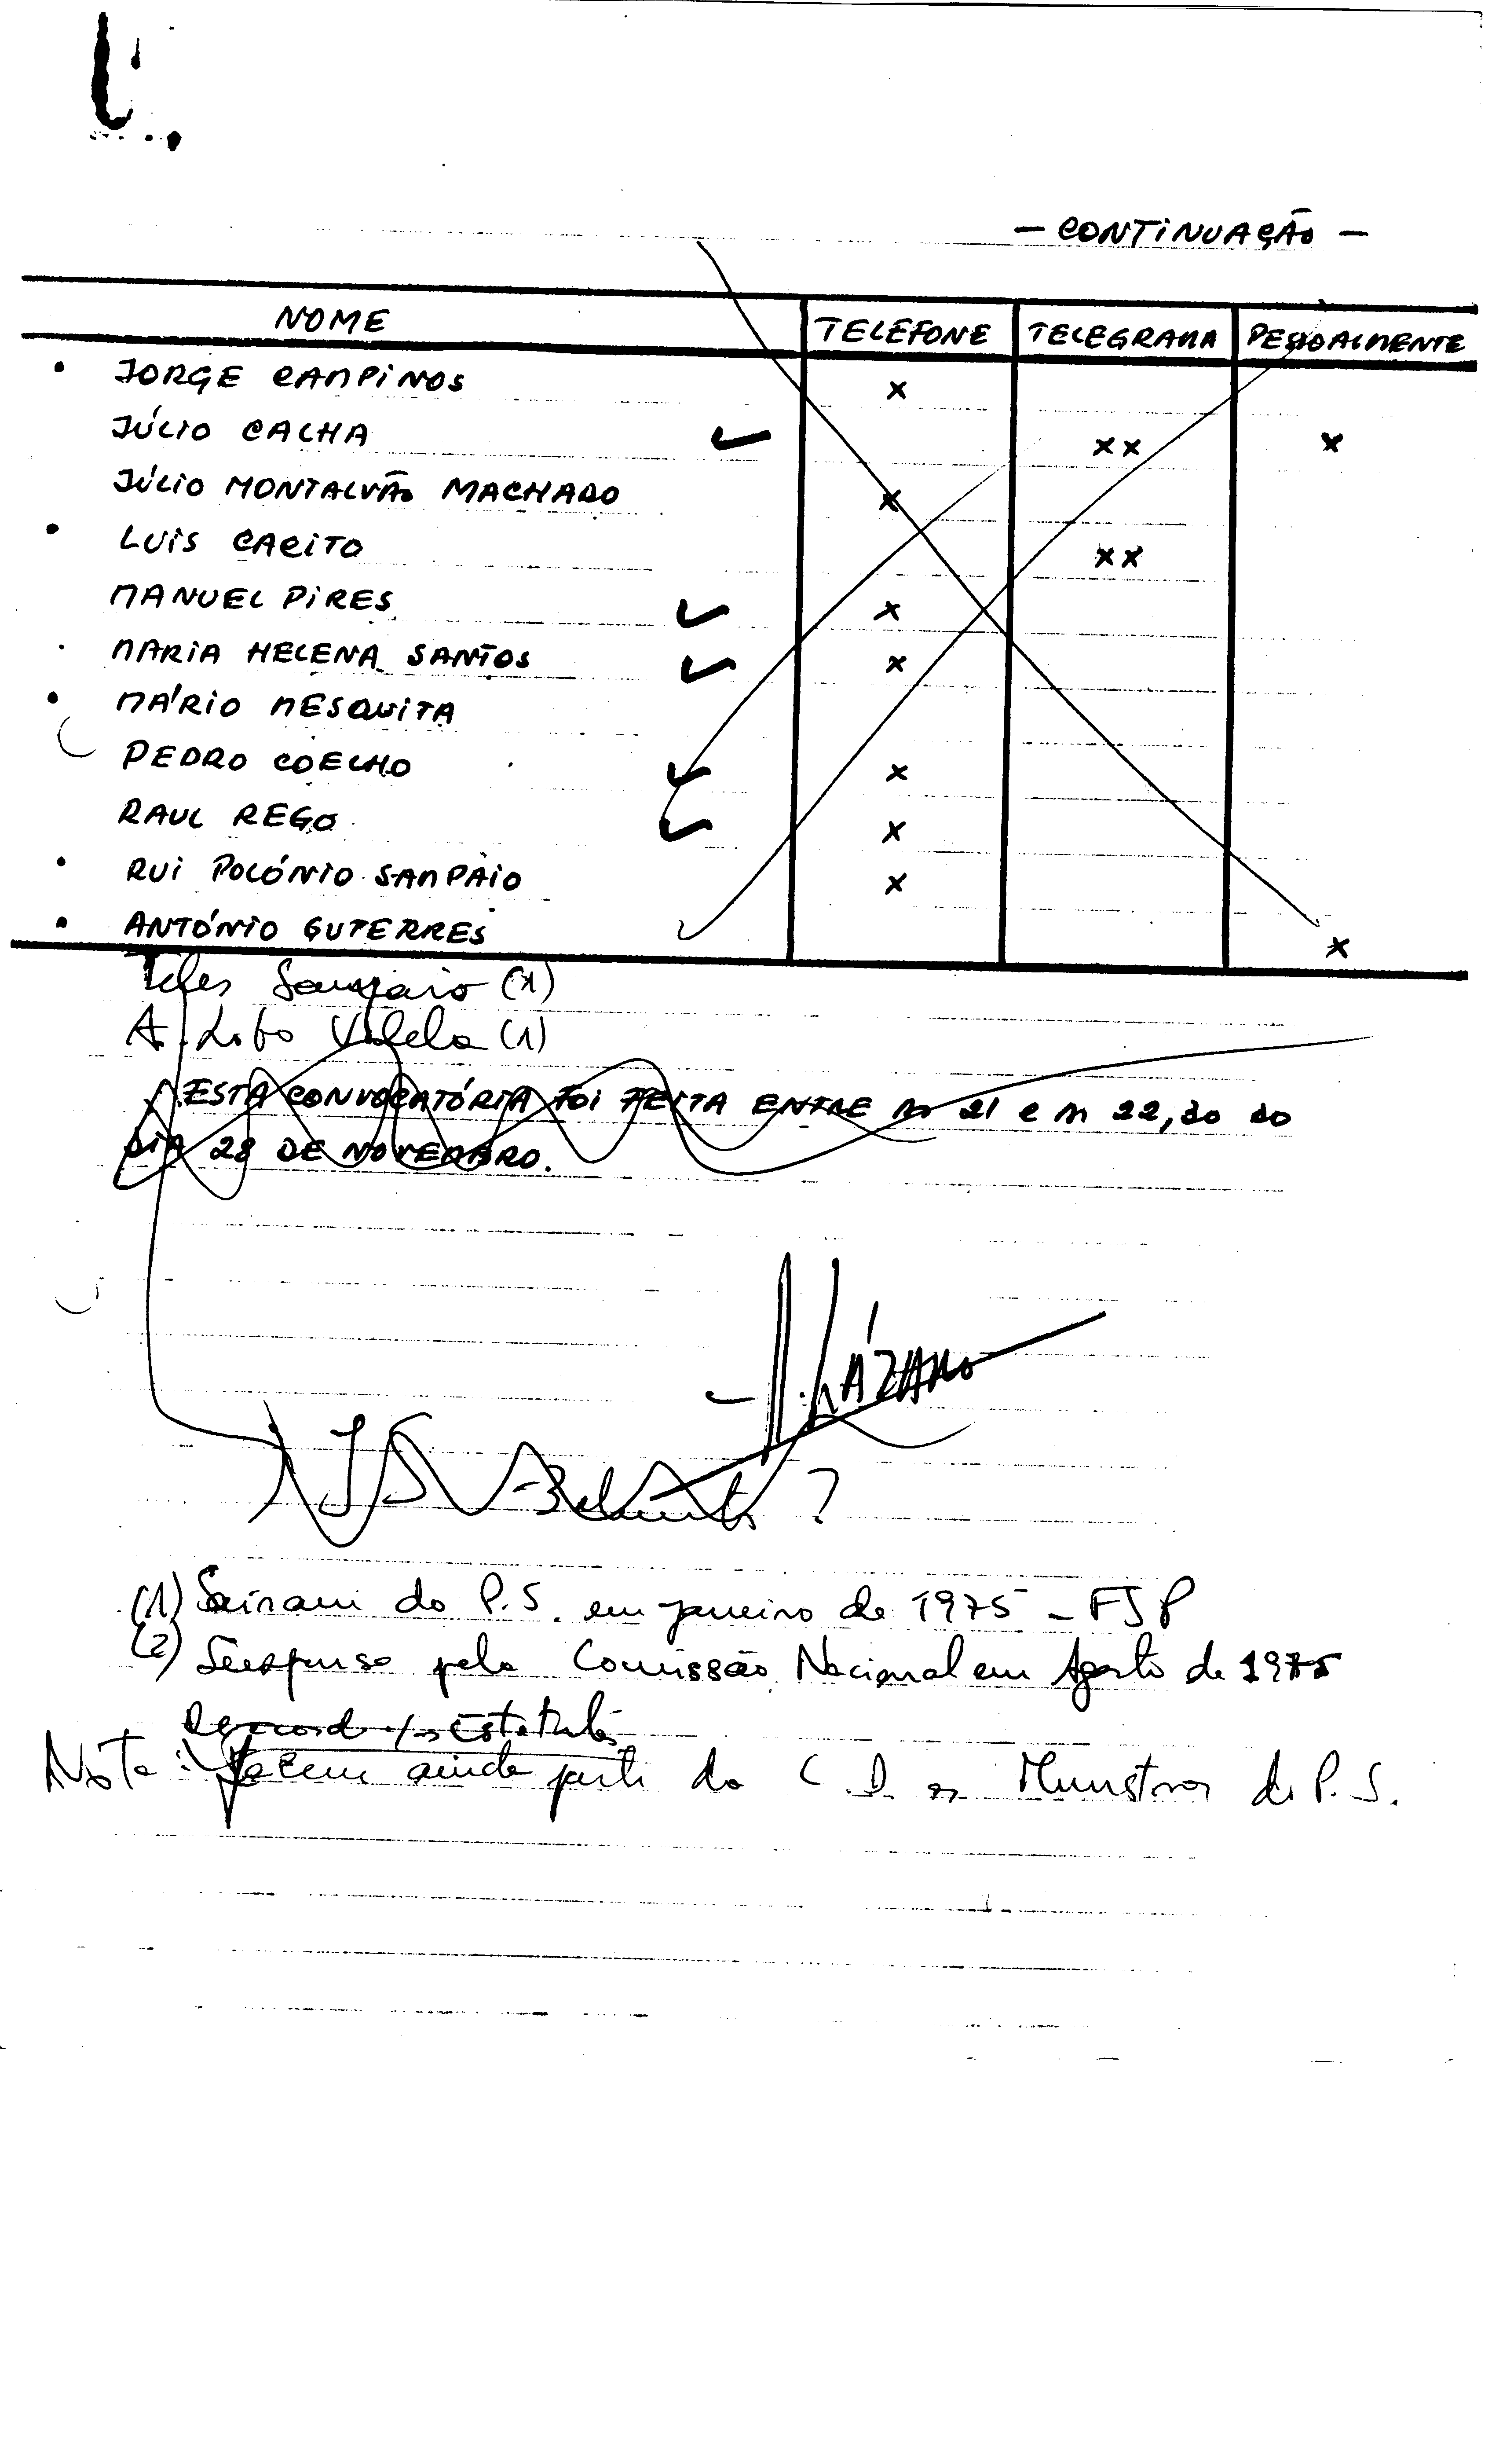 - CONTINUAÇÃO -
NOME TELEFONE TELEGRAMA PESSOALMENTE
• JORGE CAMPINOS x
JÚLIO CALHA ✓ xx x
JÚLIO MONTALVÃO MACHADO x
• LUIS CACITO xx
MANUEL PIRES ✓ x
• MARIA HELENA SANTOS ✓ x
• MÁRIO MESQUITA
PEDRO COELHO ✓ x
RAUL REGO ✓ x
• RUI POLÓNIO SAMPAIO x
• ANTÓNIO GUTERRES x
Teles Sampaio (1)
A. Lobo Vilela (1)
ESTA CONVOCATÓRIA FOI FEITA ENTRE AS 21 e AS 22,30 DO
DIA 28 DE NOVEMBRO.
LÁZARO
?
(1) Sairam do P.S. em janeiro de 1975 - FSP
(2) Suspenso pela Comissão Nacional em Agosto de 1975
Estatutos
Nota: Fazem ainda parte da C.D. os Ministros do P.S.